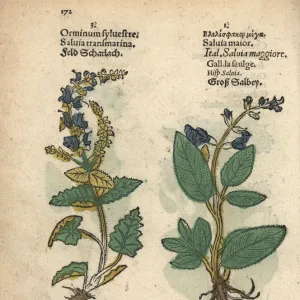 172
Orminum syluestre.
Saluia transmarina.
Feld Scharlach.
Saluia maior.
Ital. Saluia maggiore.
Gall. la saulge.
Hisp. Saluia.
Groß Salbey.